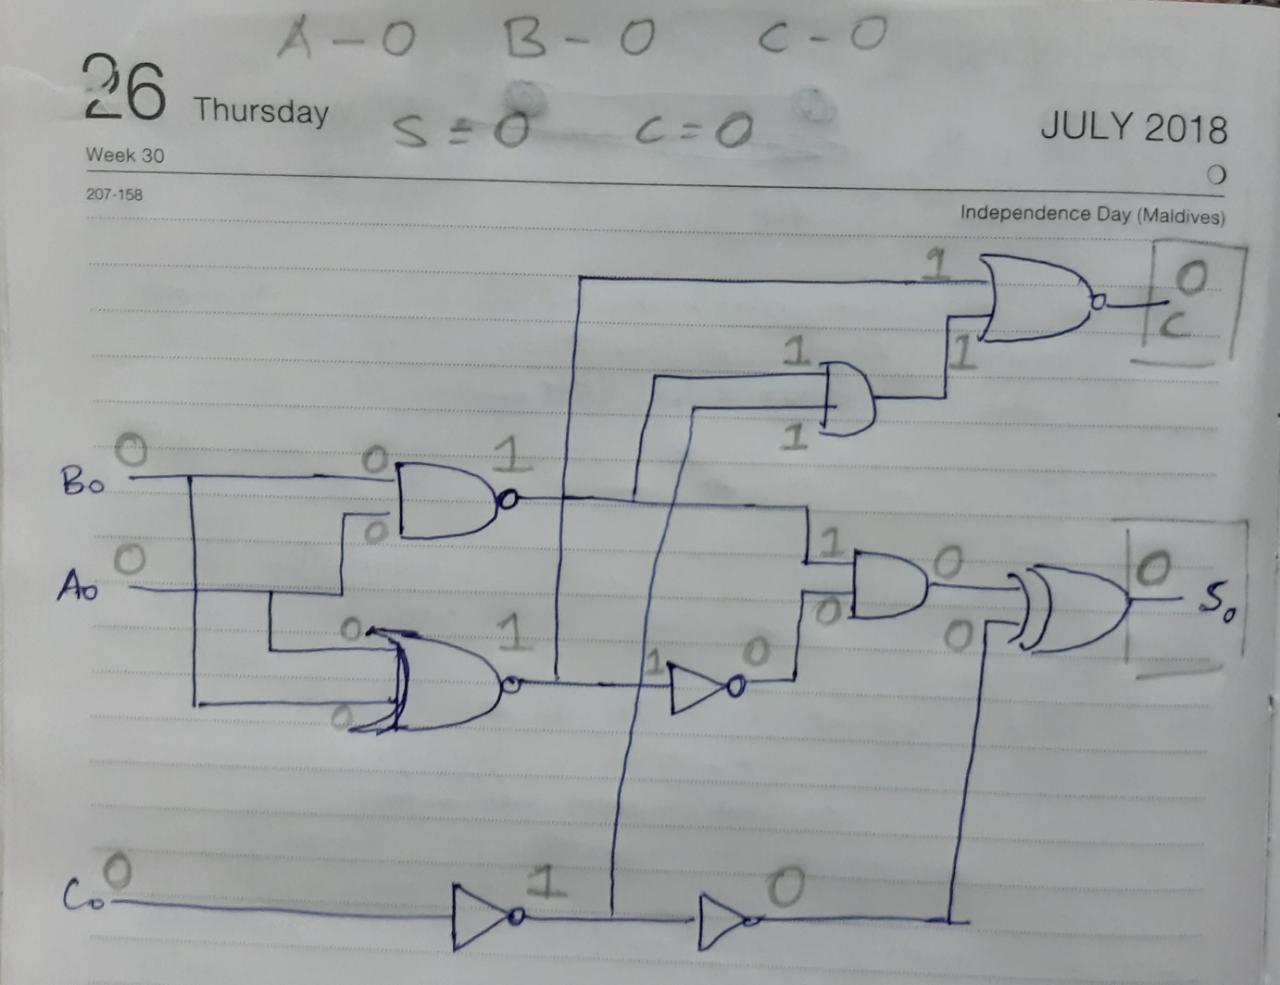 A - 0 B - 0 C - 0
26 Thursday
S = 0 C = 0
JULY 2018
Week 30
207-158
Independence Day (Maldives)
1 0
C
1 1
1
0 0 1
B₀
0
0 1 0 0
A₀ 0 0 S₀
0 1 1 0
0
0 1 0
C₀